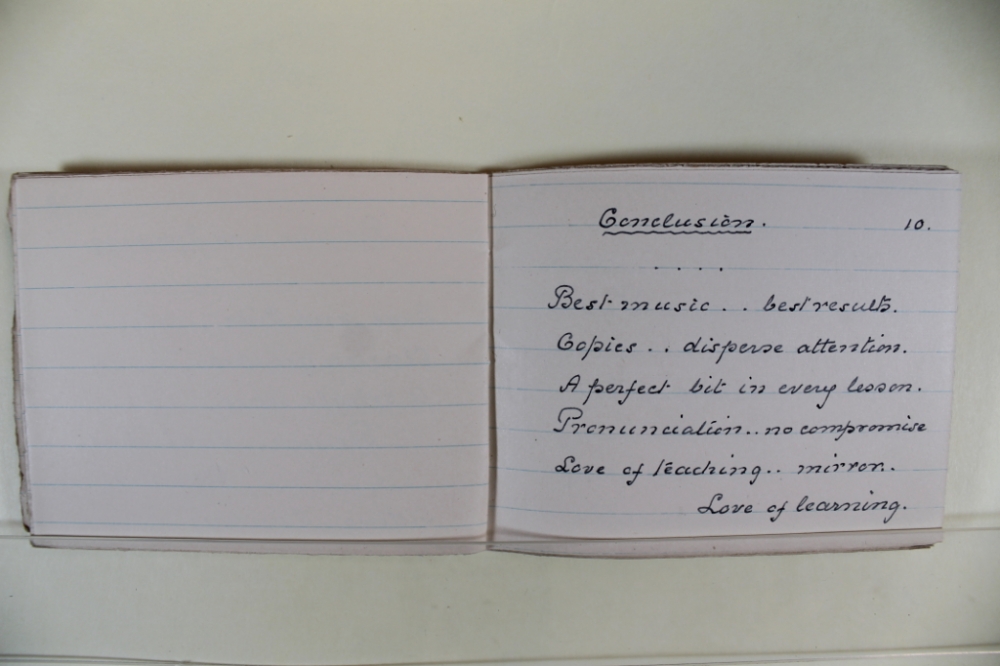 Conclusion. 10.
. . . .
Best music . . best results.
Copies . . disperse attention.
A perfect bit in every lesson.
Pronunciation . . no compromise
Love of teaching . . mirror.
Love of learning.